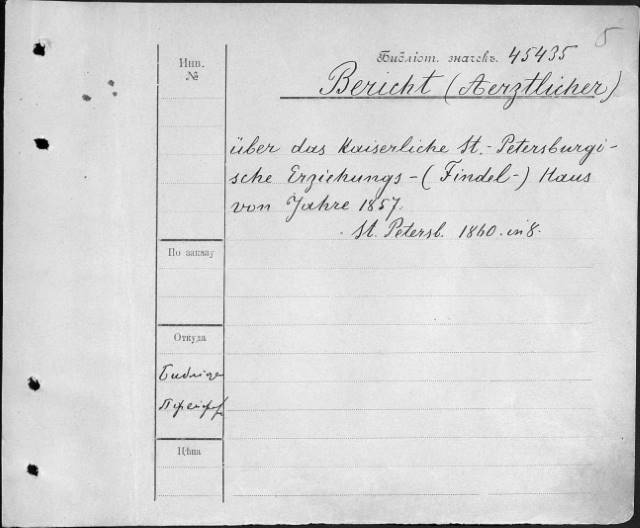 5
Библіот. значекъ. 45435
Инв.
№
Bericht (Aerztlicher)
über das Kaiserliche St.-Petersburgi-
sche Erziehungs-(Findel-) Haus
von Jahre 1857.
St. Petersb. 1860. in 8.
По заказу
Откуда
Пфейф
Цѣна